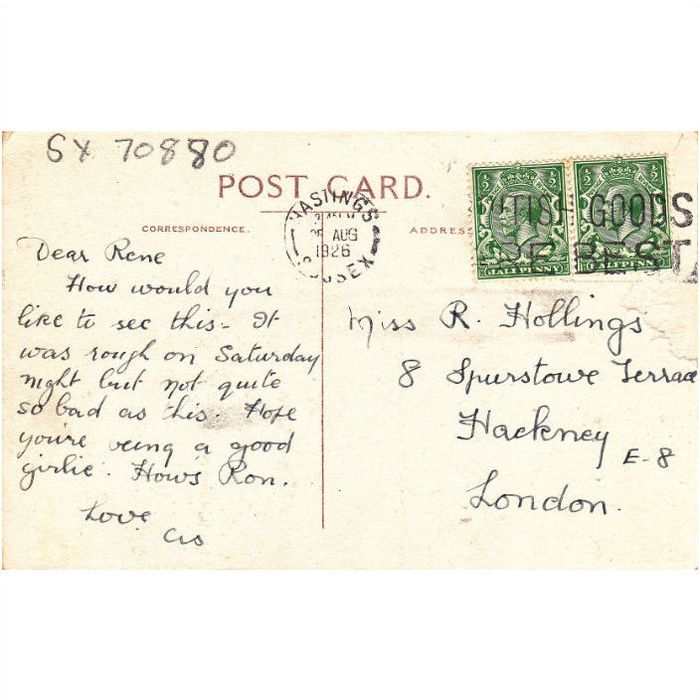 SX 70880
POST CARD.
CORRESPONDENCE.
ADDRESS
HASTINGS
AUG
1926
SUSSEX
½ ½ ½ ½
HALFPENNY HALFPENNY
BRITISH GOODS
ARE BEST
Dear Rene
How would you
like to see this - It
was rough on Saturday
night but not quite
so bad as this. Hope
you're being a good
girlie. Hows Ron.
Love
Cis
Miss R. Hollings
8 Spurstowe Terrace
Hackney
E-8
London.